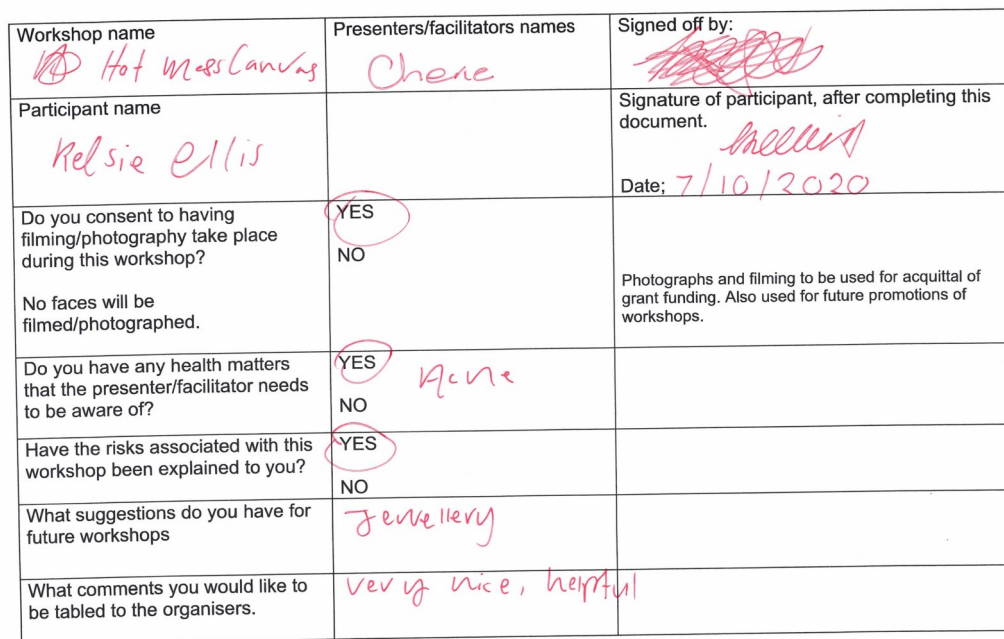 Workshop name
Hot Mess Canvas
Presenters/facilitators names
Chene
Signed off by:
Participant name
Kelsie Ellis
Signature of participant, after completing this
document.
Date; 7/10/2020
Do you consent to having
filming/photography take place
during this workshop?
No faces will be
filmed/photographed.
YES
NO
Photographs and filming to be used for acquittal of
grant funding. Also used for future promotions of
workshops.
Do you have any health matters
that the presenter/facilitator needs
to be aware of?
YES
Acne
NO
Have the risks associated with this
workshop been explained to you?
YES
NO
What suggestions do you have for
future workshops
Jewellery
What comments you would like to
be tabled to the organisers.
very nice, helpful